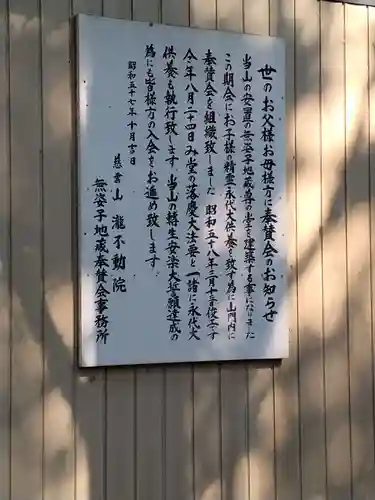 世のお父様お母様方に奉賛会のお知らせ
当山の安置の無姿子地蔵尊の堂を建築する事になりました
この期会にお子様の精霊永代大供養を致す為に山門内に
奉賛会を組織致しました 昭和五十八年三月十一日俊工す
今年八月二十四日み堂の落慶大法要と一諸に永代大
供養も執行致します 当山の轉生安楽大近願達成の
為にも皆様方の入会をお進め致します
昭和五十七年十月吉日
慈雲山 瀧不動院
無姿子地蔵奉賛会事務所